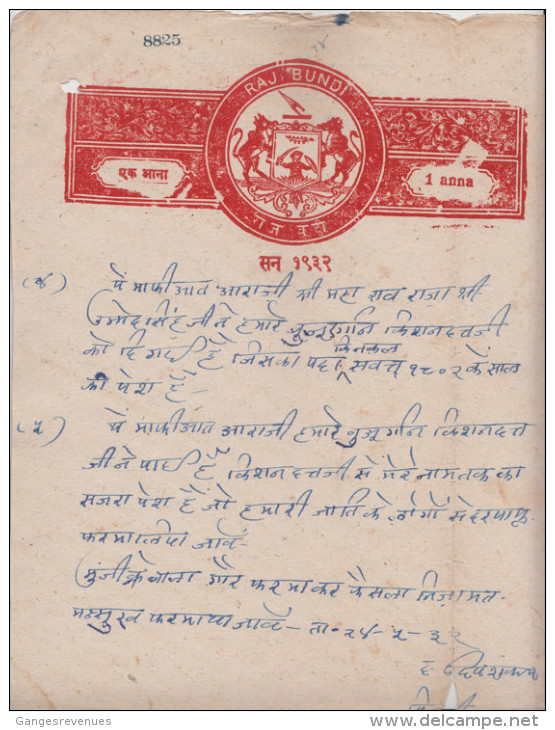 8825
RAJ BUNDI
एक आना
1 anna
राज बूंदी
सन १९३२
(४) ये माफीआत आराजी श्री महा राव राजा श्री
उम्मेदसिंहजी ने हमारे बुजुर्गान किशनदत्तजी
को दि गई है जिसका पट्टा कि नकल सवत् १८०२ के साल
की पेश है -
(५) ये माफीआत आराजी हमारे बुजुर्गान किशनदत्त
जी ने पाई है किशनदत्तजी से मेरे नाम तक का
सजरा पेश है जो हमारी जाति के लोगों से दरयाफ्त
फरमा लिया जावे -
गौर फरमाकर फैसला निजामत
मनसुख फरमाया जावे - ता॰ २४-५-३२
द॰
Gangesrevenues
delcampe.net